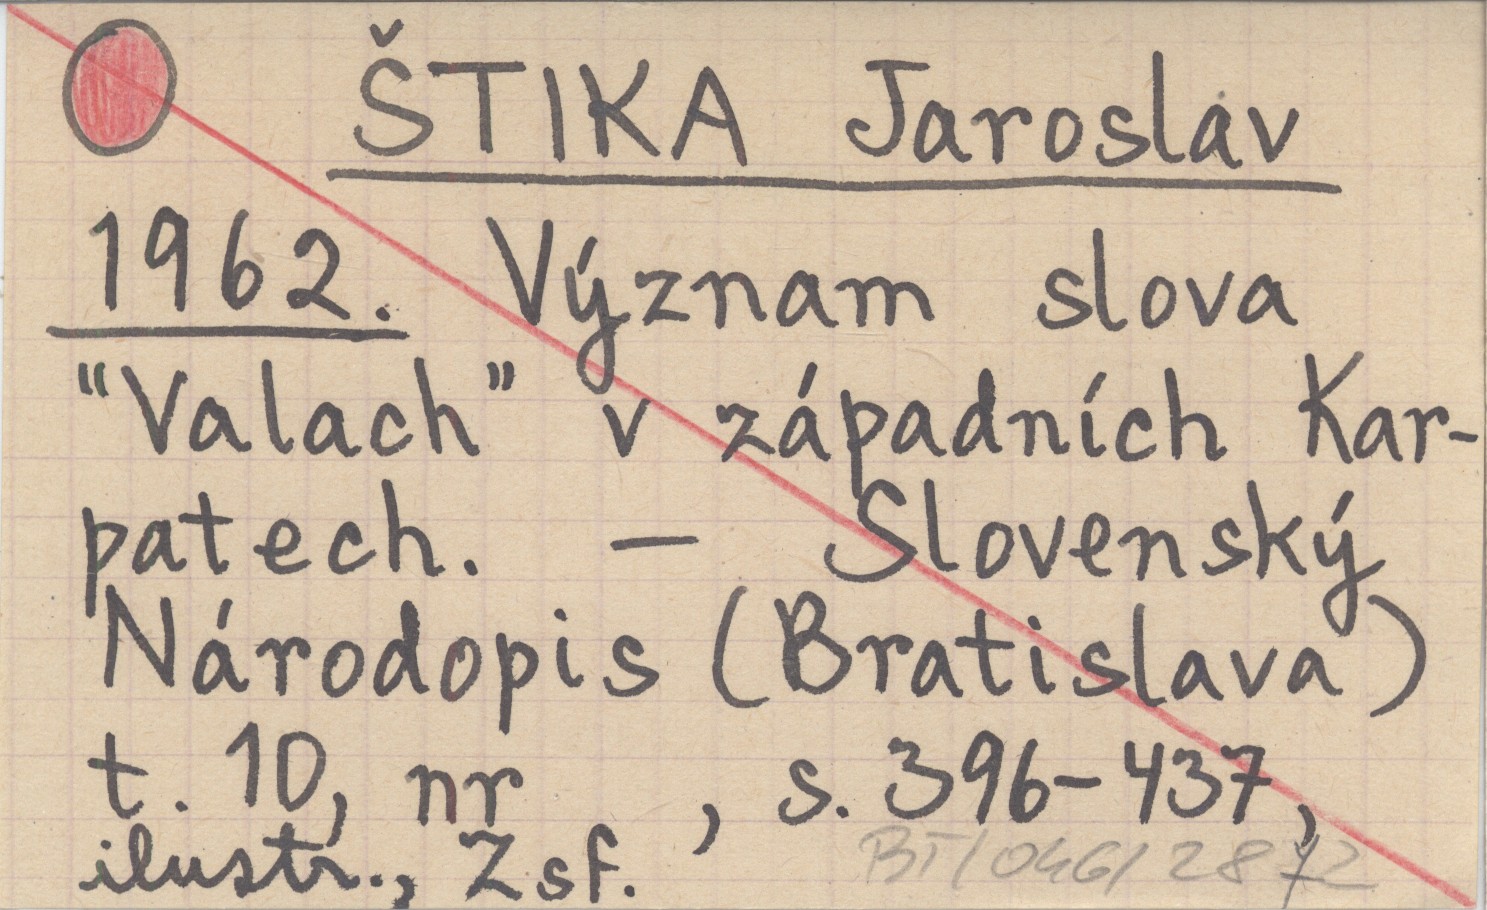 ŠTIKA Jaroslav
1962. Význam slova
"Valach" v západních Kar-
patech. — Slovenský
Národopis (Bratislava)
t. 10, nr , s. 396-437,
ilustr., Zsf.
BT/046/2872